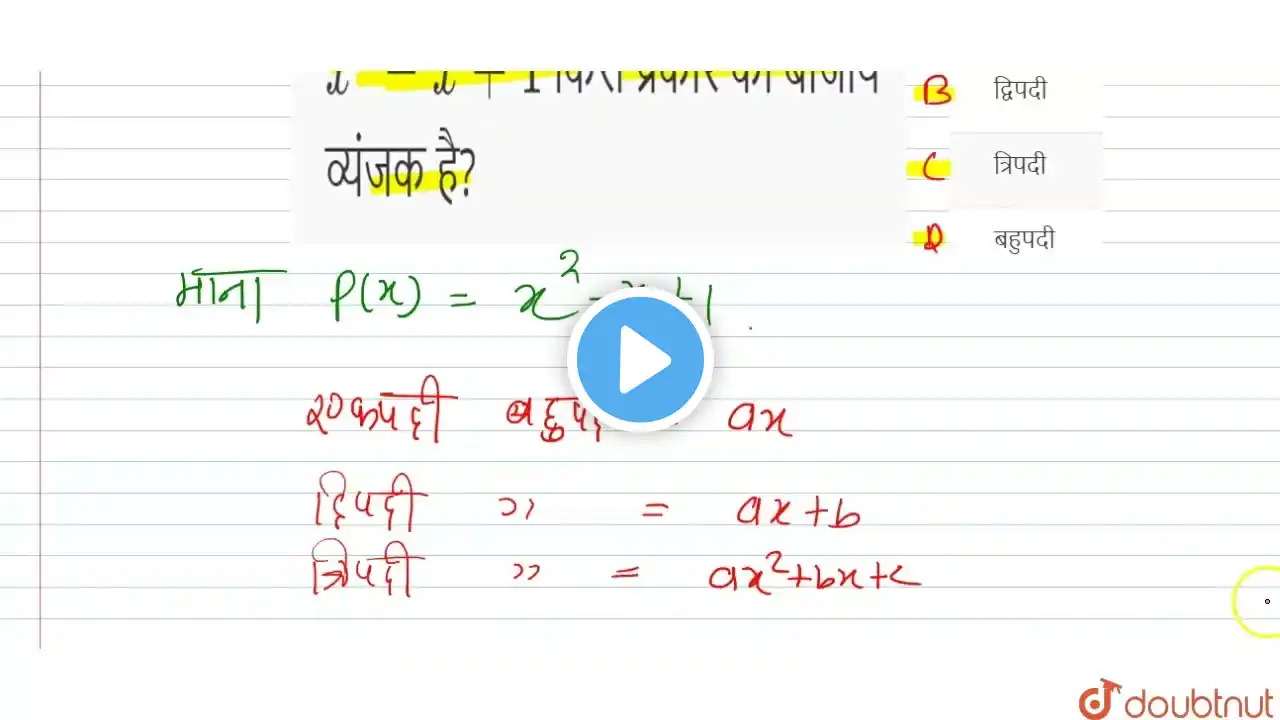 x² - x + 1 किस प्रकार का बीजीय
व्यंजक है?
B द्विपदी
C त्रिपदी
D बहुपदी
माना P(x) = x² - x + 1
एकपदी = ax
द्विपदी " = ax + b
त्रिपदी " = ax² + bx + c
doubtnut